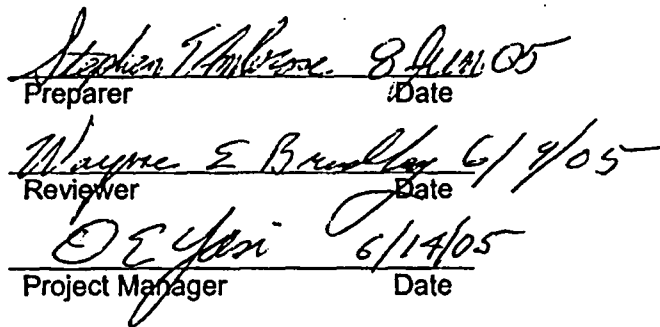 Stephen T Ambrose 8 Jun 05
Preparer Date
Wayne E Bradley 6/9/05
Reviewer Date
O E Yasi 6/14/05
Project Manager Date